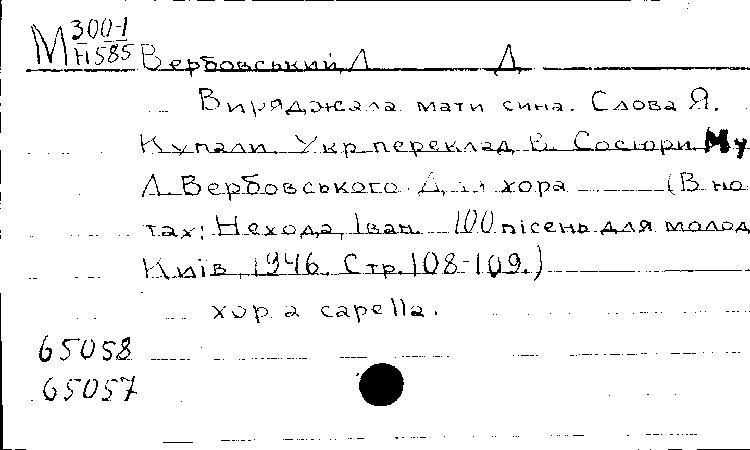 М 300-1
Н585
Вербовський, Л Д
Виряджала мати сина. Слова Я.
Купали. Укр. переклад В. Сосюри. Му
Л. Вербовського. Для хора (В но
тах: Нехода, Іван. 100 пісень для молод
Київ, 1946. Стр. 108-109.)
хор a capella.
65058
65057